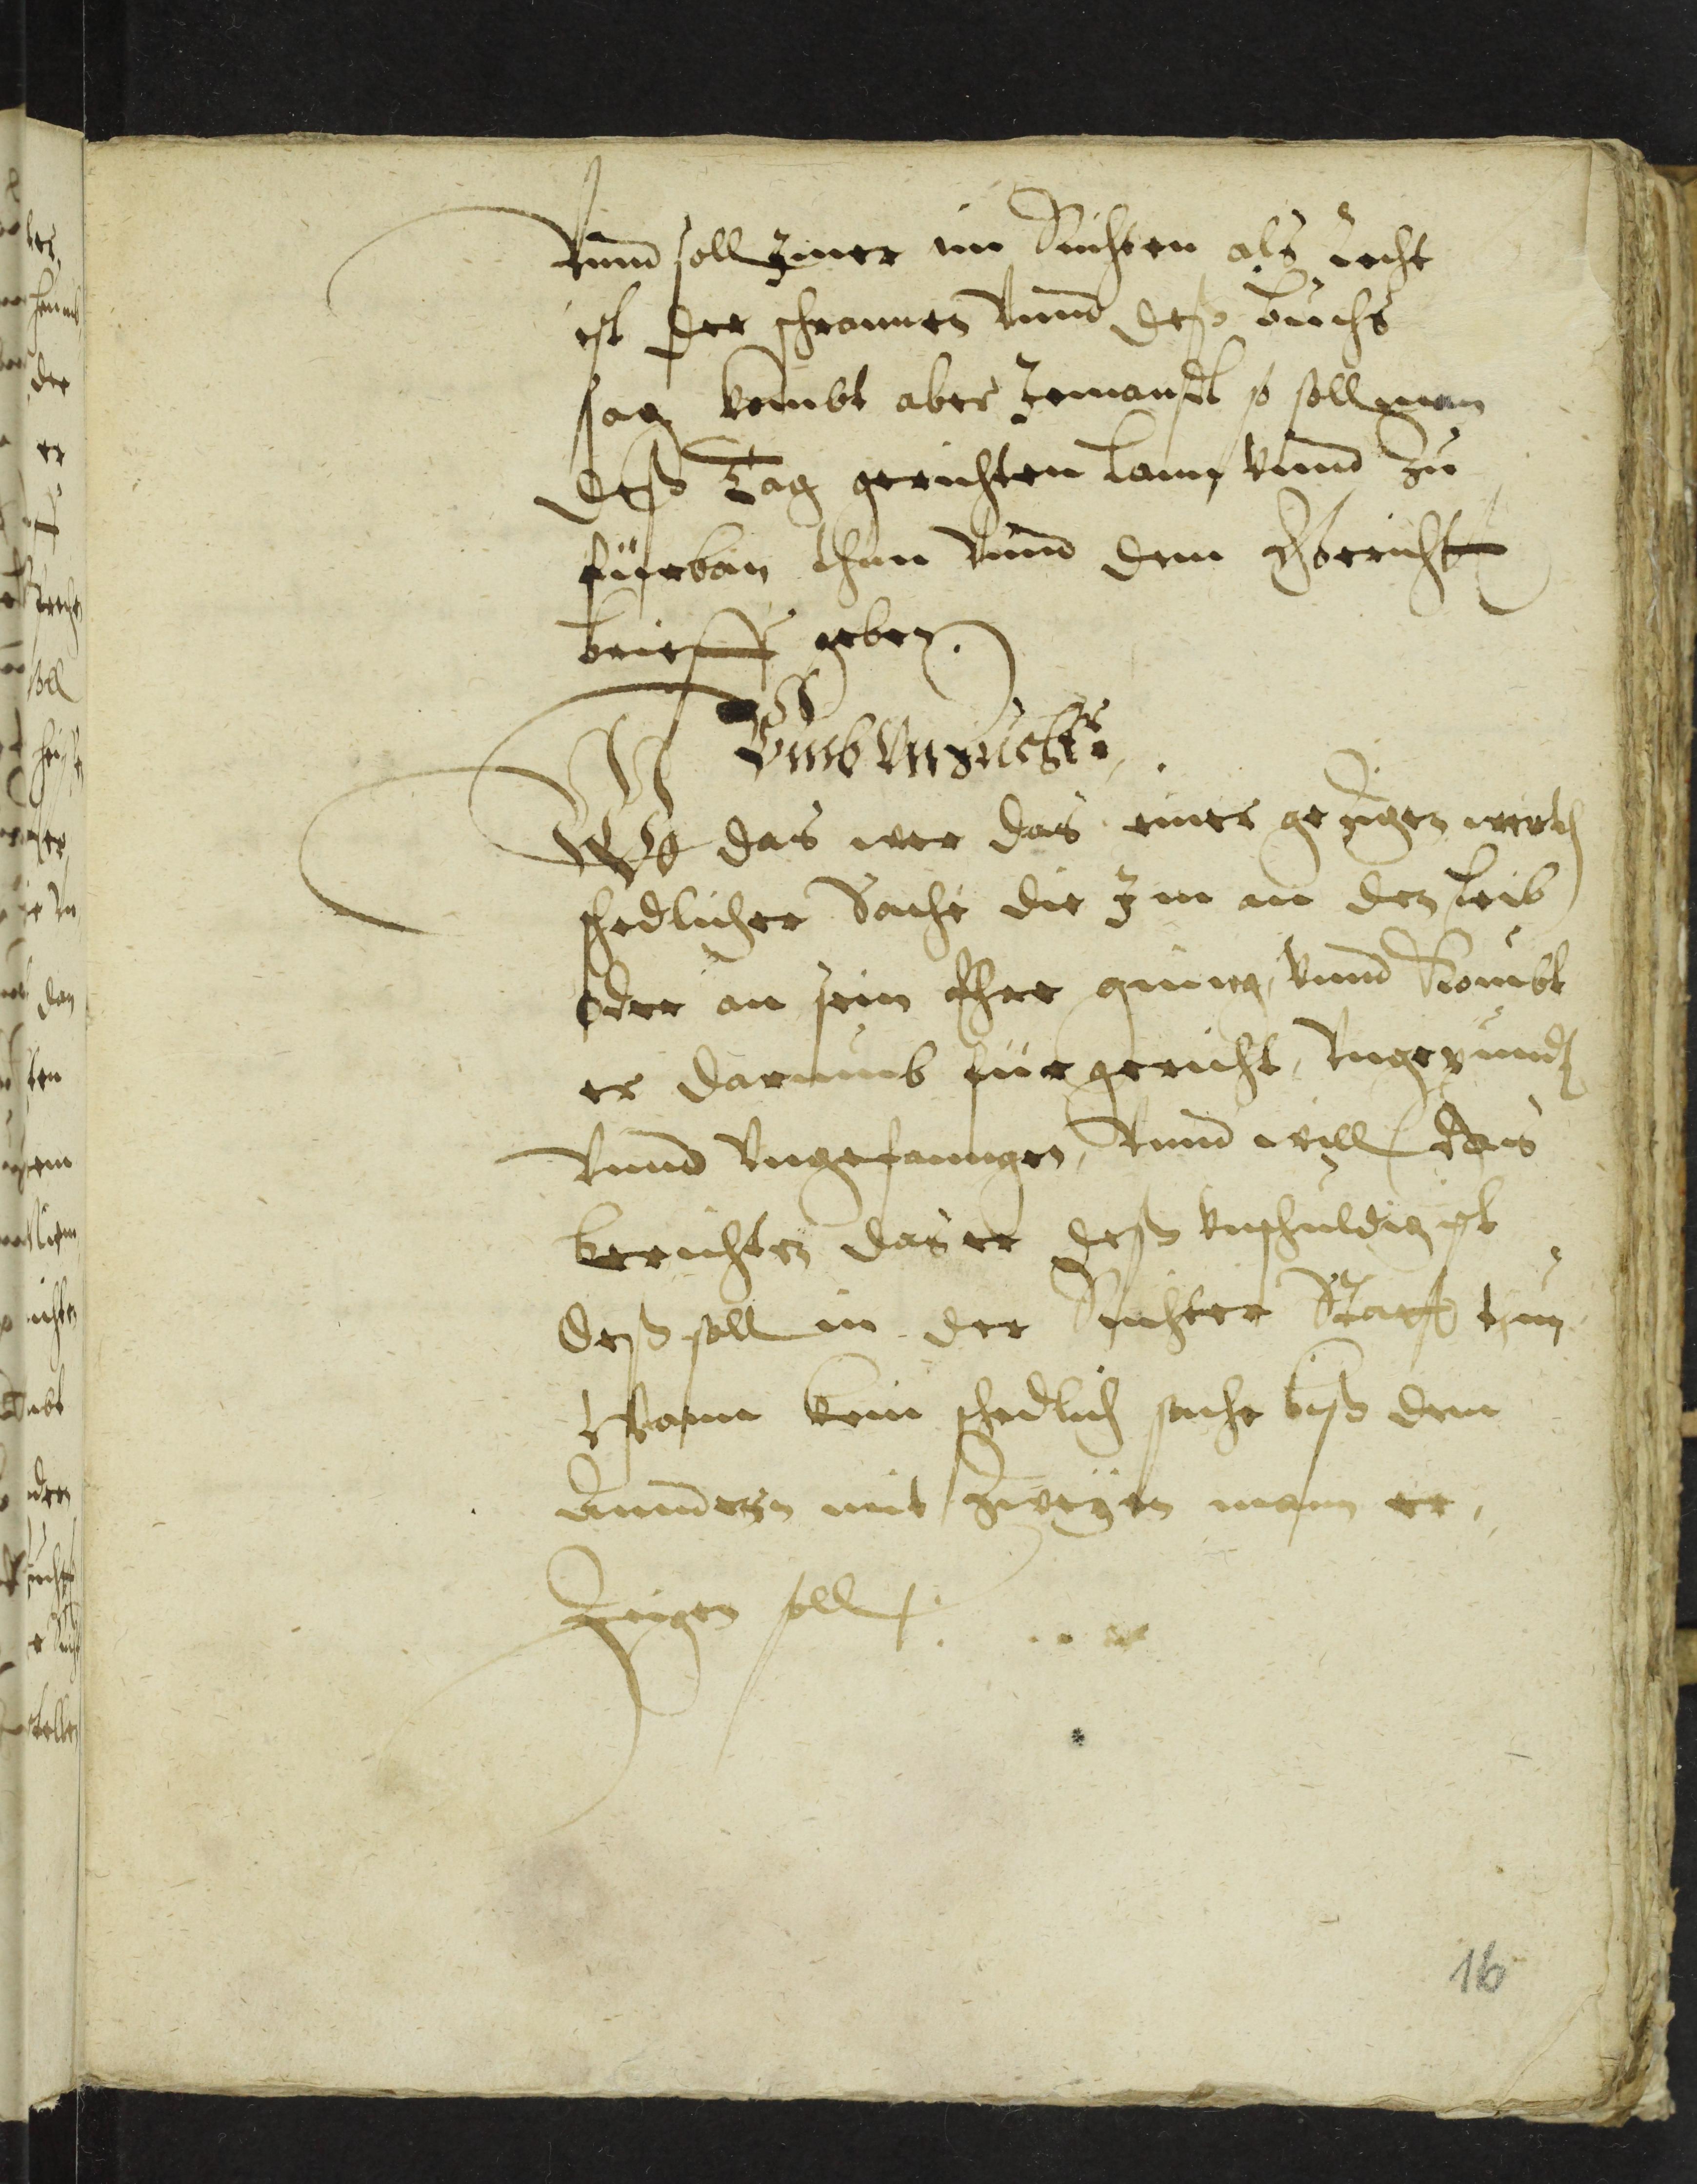 Vnnd soll Jmer ein Richten als recht
ist der schrannen Vnnd deß buchs
sag kombt aber Jemandt so soll man
deß Tag gerichten lann, Vnnd zu
fürban thun Vnnd dem Gericht
brieff geben.
Vmb Vnzucht.
Ist das wer das einer gezigen wirdt
schedlicher Sache die Jm an den leib
oder an sein Ehre gienng, Vnnd kombt
er darumb für gericht, Vngepundn
Vnnd Vngefanngen, Vnnd will das
berichten das er deß vnschuldig ist
deß soll in der Richter Starff thun
Wann kein schedlich sache biß dem
anndern mit zweyen mann er,
zeigen soll
16